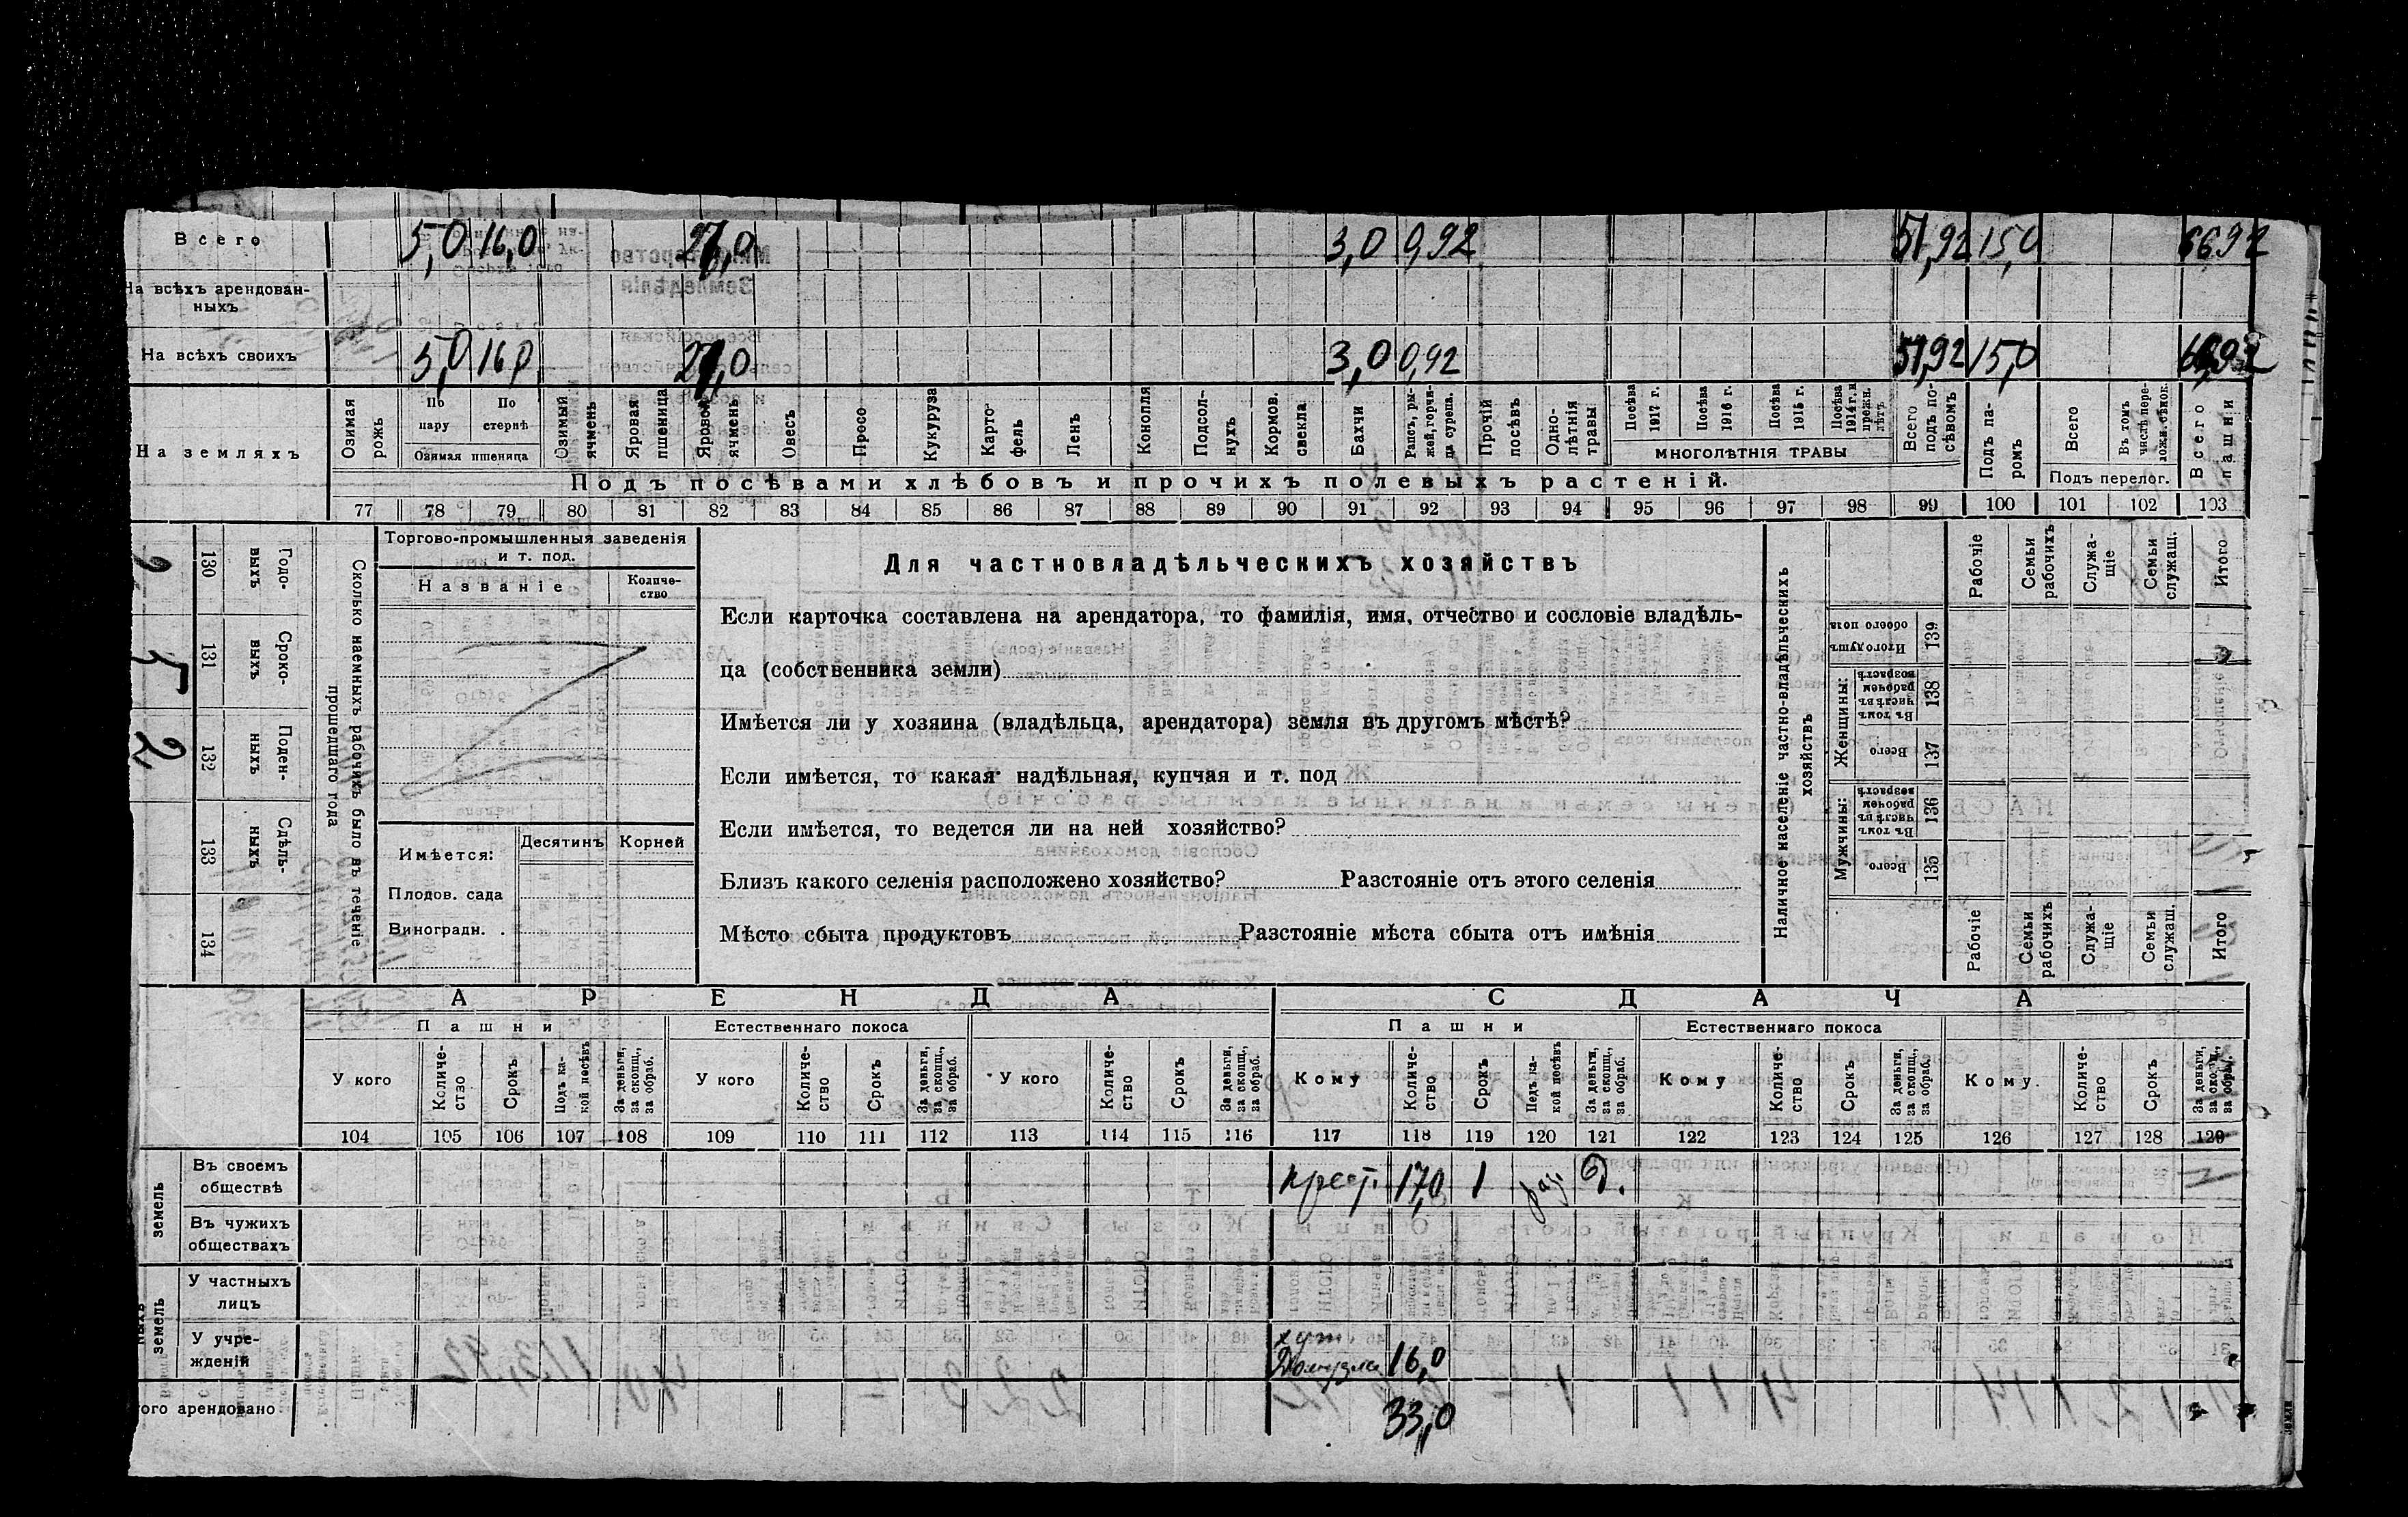 Всего 5,0 16,0 27,0 3,0 0,92 51,92 15,0 66,92
На всѣхъ арендован-
ныхъ
На всѣхъ своихъ 5,0 16,0 27,0 3,0 0,92 51,92 15,0 66,92
На земляхъ
Озимая рожь
По пару
По стернѣ
Озимая пшеница
Озимый ячмень
Яровая пшеница
Яровой ячмень
Овесъ
Просо
Кукуруза
Карто-
фель
Ленъ
Конопля
Подсол-
нухъ
Кормов.
свекла
Бахчи
Рапсъ, ры-
жей, горчи-
ца сурепа.
Прочій посѣвъ
Одно-
лѣтнія травы
Посѣва 1917 г.
Посѣва 1916 г.
Посѣва 1915 г.
Посѣва 1914 г. и прежн. лѣтъ
МНОГОЛѢТНІЯ ТРАВЫ
Всего подъ по-
сѣвомъ
Подъ па-
ромъ
Всего
Въ томъ числѣ пере-
ложн. сѣнок.
Подъ перелог.
Всего пашни
Подъ посѣвами хлѣбовъ и прочихъ полевыхъ растеній.
77 78 79 80 81 82 83 84 85 86 87 88 89 90 91 92 93 94 95 96 97 98 99 100 101 102 103
Сколько наемныхъ рабочихъ было въ теченіе
прошедшаго года
Годо-
выхъ
130
2
Сроко-
выхъ
131
5
Поден-
ныхъ
132
2
Сдѣль-
ныхъ
133
134
Торгово-промышленныя заведенія
и т. под.
Названіе
Количе-
ство
Имѣется:
Десятинъ
Корней
Плодов. сада
Виноградн.
Для частновладѣльческихъ хозяйствъ
Если карточка составлена на арендатора, то фамилія, имя, отчество и сословіе владѣль-
ца (собственника земли)
Имѣется ли у хозяина (владѣльца, арендатора) земля въ другомъ мѣстѣ?
Если имѣется, то какая надѣльная, купчая и т. под
Если имѣется, то ведется ли на ней хозяйство?
Близъ какого селенія расположено хозяйство? Разстояніе отъ этого селенія
Мѣсто сбыта продуктовъ Разстояніе мѣста сбыта отъ имѣнія
Наличное населеніе частно-владѣльческихъ
хозяйствъ
Рабочіе
Семьи рабочихъ
Служа-
щіе
Семьи служащ.
Итого
Итого душъ обоего пола
139
Женщины:
Въ томъ числѣ въ рабочемъ возрастѣ
138
Всего
137
Мужчины:
Въ томъ числѣ въ рабочемъ возрастѣ
136
Всего
135
Рабочіе
Семьи рабочихъ
Служа-
щіе
Семьи служащ.
Итого
АРЕНДА СДАЧА
Пашни Естественнаго покоса Пашни Естественнаго покоса
У кого
Количе-
ство
Срокъ
Подъ ка-
кой посѣвъ
За деньги,
за скопщ.,
за обраб.
У кого
Количе-
ство
Срокъ
За деньги,
за скопщ.,
за обраб.
У кого
Количе-
ство
Срокъ
За деньги,
за скопщ.,
за обраб.
Кому
Количе-
ство
Срокъ
Подъ ка-
кой посѣвъ
За деньги,
за скопщ.,
за обраб.
Кому
Количе-
ство
Срокъ
За деньги,
за скопщ.,
за обраб.
Кому.
Количе-
ство
Срокъ
За деньги,
за скопщ.,
за обраб.
104 105 106 107 108 109 110 111 112 113 114 115 116 117 118 119 120 121 122 123 124 125 126 127 128 129
земель
Въ своемъ
обществѣ
крест. 17,0 1 раз. д.
Въ чужихъ
обществахъ
земель
У частныхъ
лицъ
У учре-
жденій
хут
16,0
ого арендовано
33,0